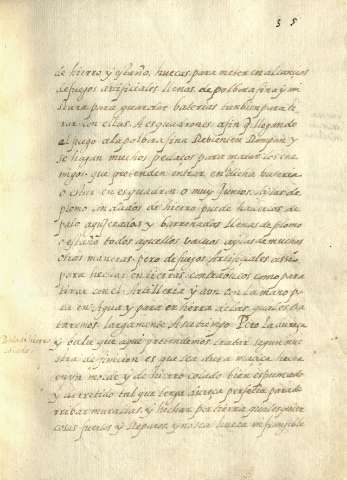 55
de hierro y estaño, huecas para meter en alcançias
de fuegos artificiales llenas de polbora fina y mi
stura para guardar baterias tambien para ti
rar con ellas. A esquadrones, afin q̃ llegando
el fuego a la polbora fina Rebienten Rompan y
se hagan muchos pedaços para matar los ene
migos que pretenden entrar en dicha bateria
o estar en esquadron o muy Juntos,
plomo con dados de hierro puede hazerlas de
palo agujeradas y barrenadas llenas de plomo
o estaño todos aquellos balas de muchas
otras maneras, pero de fuegos Artificiales assi
para hechar en tierras como para
tirar con el Artilleria y aun con la mano pa
ra en Agua y para en tierra de las quales tra
taremos largamente A su tiempo Pero la
y bala que aqui pretendemos tratar segun nue
stra definicion es que sea dura maciça hecha
en un molde y de hierro colado bien espumado
y derretido tal que tenga dureça perfecta para de
rribar murallas y hechar por tierra qualesquier
cosas fuertes y Reparos, y no sea hueca ni sensible